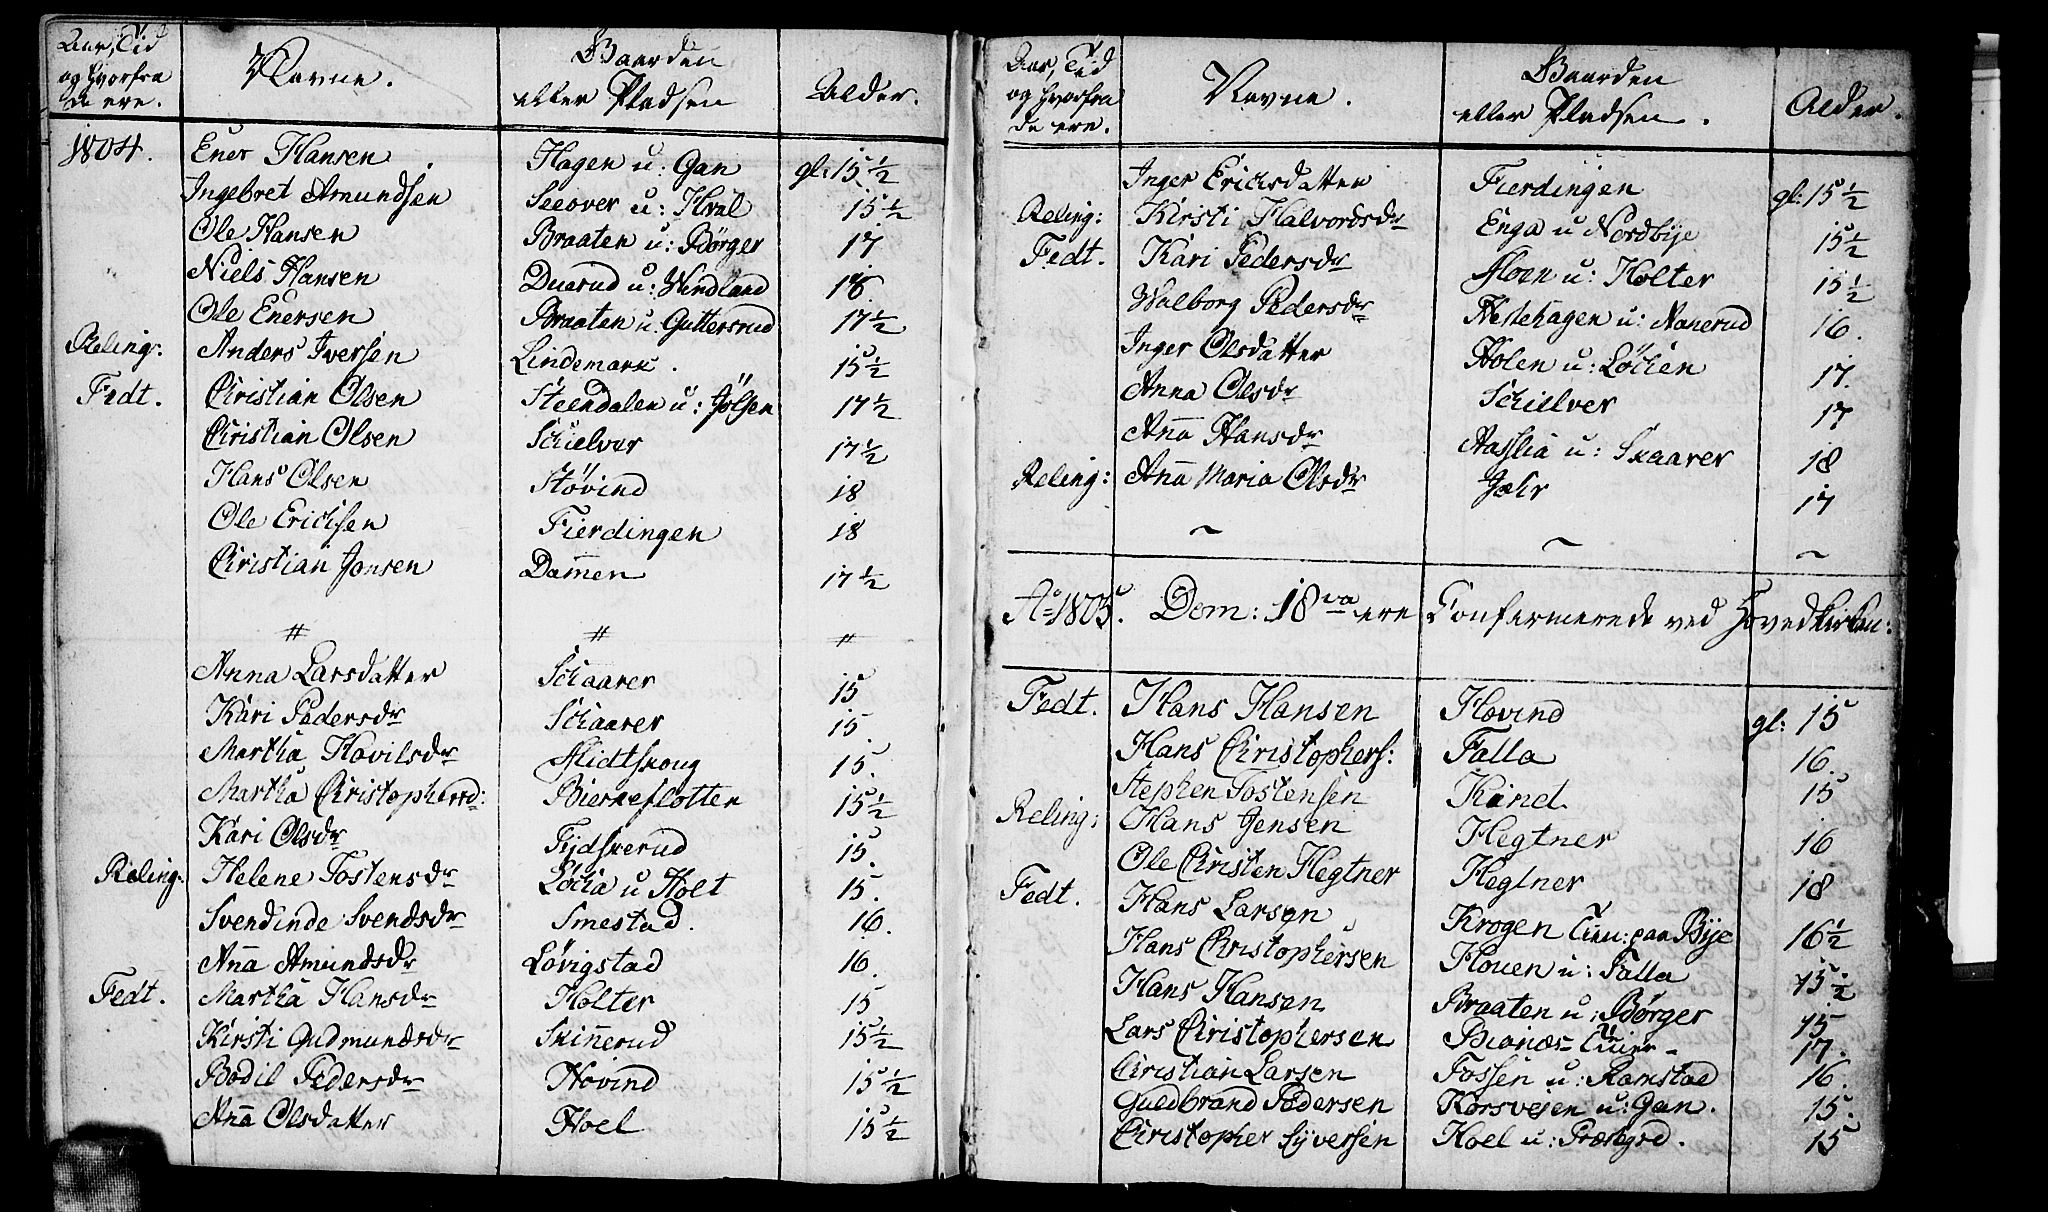 Aar, Tid og hvorfra de ere. Navne. Gaarden eller Pladsen Alder.
1804. Ener Hansen Hagen u: Gan gl: 15 1/2
Ingebret Amundsen Seeover u: Hval 15 1/2
Ole Hansen Braaten u: Børger 17
Niels Hansen Duerud u: Vindland 18.
Ole Enersen Braaten u: Guttersrud 17 1/2
Reling: Anders Iversen Lindemark. 15 1/2
Fedt. Christian Olsen Steendalen u: Jølsen 17 1/2
Christian Olsen Schielver 17 1/2
Hans Olsen Støvind 18
Ole Erichsen Fierdingen 18
Christian Jonsen Dam̄en 17 1/2
# # #
Anna Larsdatter Schaarer 15
Kari Pedersdr Schaarer 15.
Martha Hovilsdr Midtskoug 15.
Martha Christophersd: Bierkeslotten 15 1/2
Kari Olsdr Fydskerud 15.
Reling: Helene Tostensdr Løchia u Holt 15.
Svendinde Svendsdr Smestad. 16.
An̄a Amundsdr Løvigstad 16.
Fedt. Martha Hansdr Holter 15
Kirsti Gudmundsdr Skin̄erud 15 1/2
Bodil Pedersdr Hovind 15 1/2
An̄a Olsdatter Hoel 15 1/2
Aar, Tid og hvorfra de ere. Navne. Gaarden eller Pladsen. Alder.
Inger Erichsdatter Fierdingen gl: 15 1/2
Reling: Kirsti Halvordsdr Enga u Nordbye 15 1/2
Fedt. Kari Pedersdr Moen u: Holter 15 1/2
Walborg Pedersdr Hestehagen u: Nanerud 16.
Inger Olsdatter Holen u: Løchen 17.
Anna Olsdr Schielver 17
An̄a Hansdr Aaslia u: Skaarer 18
Reling: An̄a Maria Olsdr Jahr 17
~ ~ ~
Ao 1805. Dom: 18va ere Confermerede ved Hovedkirken:
Fedt. Hans Hansen Hovind gl: 15
Hans Christophers: Falla 16.
Stephen Tostensen Kind. 15
Reling: Hans Jensen Hegtner 16
Ole Christen Hegtner Hegtner 18
Fedt. Hans Larsen Krogen Tuu: paa Bye 16 1/2
Hans Christophersen Houen u: Falla 15 1/2
Hans Hansen Braaten u: Børger 15
Lars Christophersen Bionæs Tuuer - 17.
Christian Larsen Fossen u: Ramstad 16.
Guldbrand Pedersen Korsvejen u: Gan. 15.
Christopher Syversen Hoel u: Præstgrd. 15